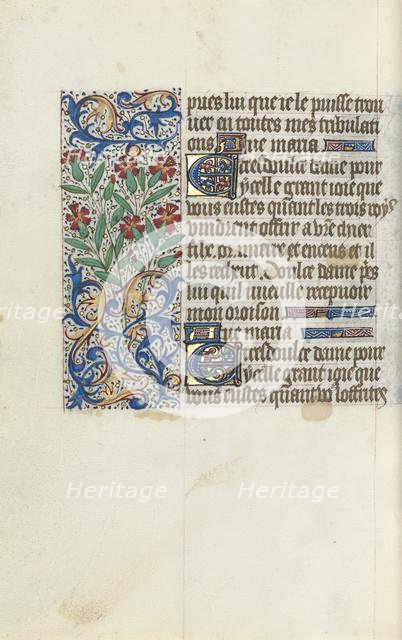 pues lui que ie le puisse trou
uer en toutes mes tribulati
ons Aue maria
Tresdoulce dame pour
ycelle grant ioie que
vous eustes quant les trois roys
vindrent offrir a vre chier
filz or mierre et encens et il
les recheut doulce dame pes
lui quil vueille recepuoir
mon oroison
Aue maria
Tresdoulce dame pour
ycelle grant ioie que
vous eustes quant vo9 loffrites
Heritage
Heritage
Heritage
Heritage
Heritage
Heritage